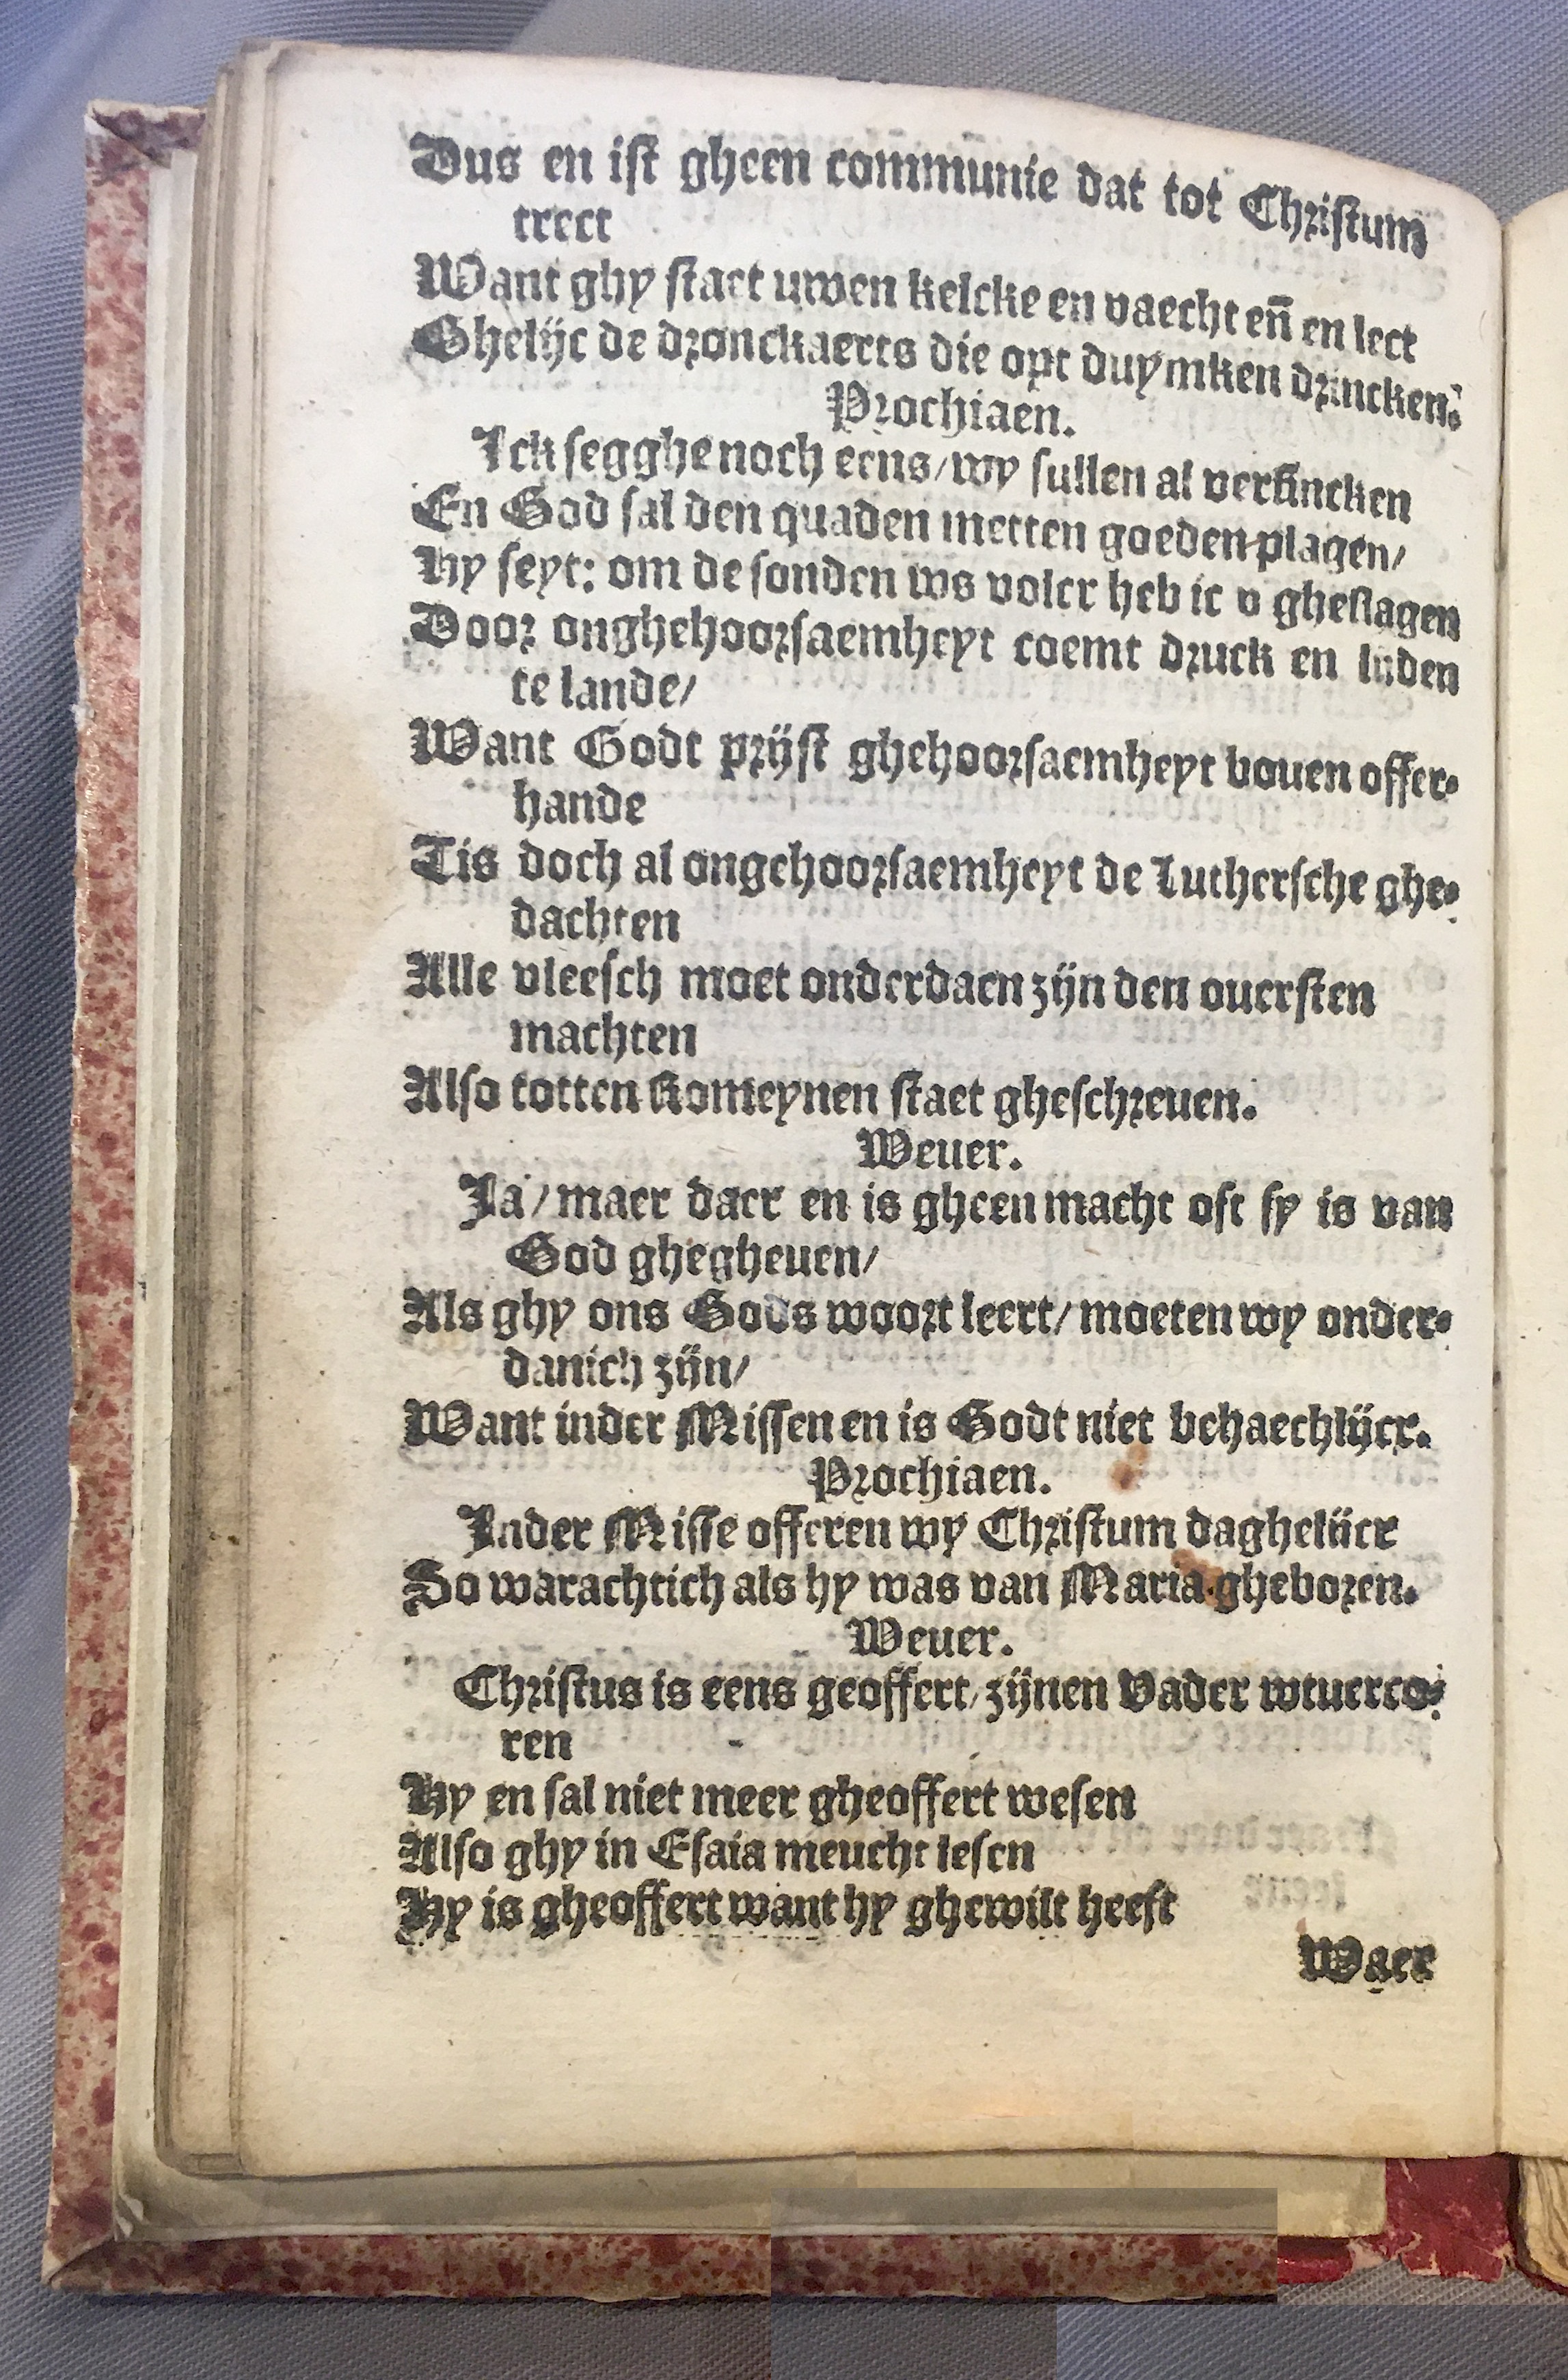 Dus en ist gheen communie dat tot Christum
trect
Want ghy staet uwen kelcke en vaecht eñ en lect
Ghelijc de dronckaerts die opt duymken drincken.
Prochiaen.
Ick segghe noch eens/wy sullen al versincken
En God sal den quaden metten goeden plagen/
Hy seyt: om de sonden ws volcx heb ic v gheslagen
Door onghehoorsaemheyt coemt druck en lijden
te lande/
Want Godt prijst ghehoorsaemheyt bouen offer-
hande
Tis doch al ongehoorsaemheyt de Luthersche ghe-
dachten
Alle vleesch moet onderdaen zijn den ouersten
machten
Also totten Romeynen staet gheschreuen.
Weuer.
Ja/maer daer en is gheen macht oft sy is van
God ghegheuen/
Als ghy ons Gods woort leert/moeten wy onder-
danich zijn/
Want inder Missen en is Godt niet behaechlijcx.
Prochiaen.
Inder Misse offeren wy Christum daghelijcx
So warachtich als hy was van Maria gheboren.
Weuer.
Christus is eens geoffert/zijnen Vader wtuerco-
ren
Hy en sal niet meer gheoffert wesen
Also ghy in Esaia meucht lesen
Hy is gheoffert want hy ghewilt heeft
Waer